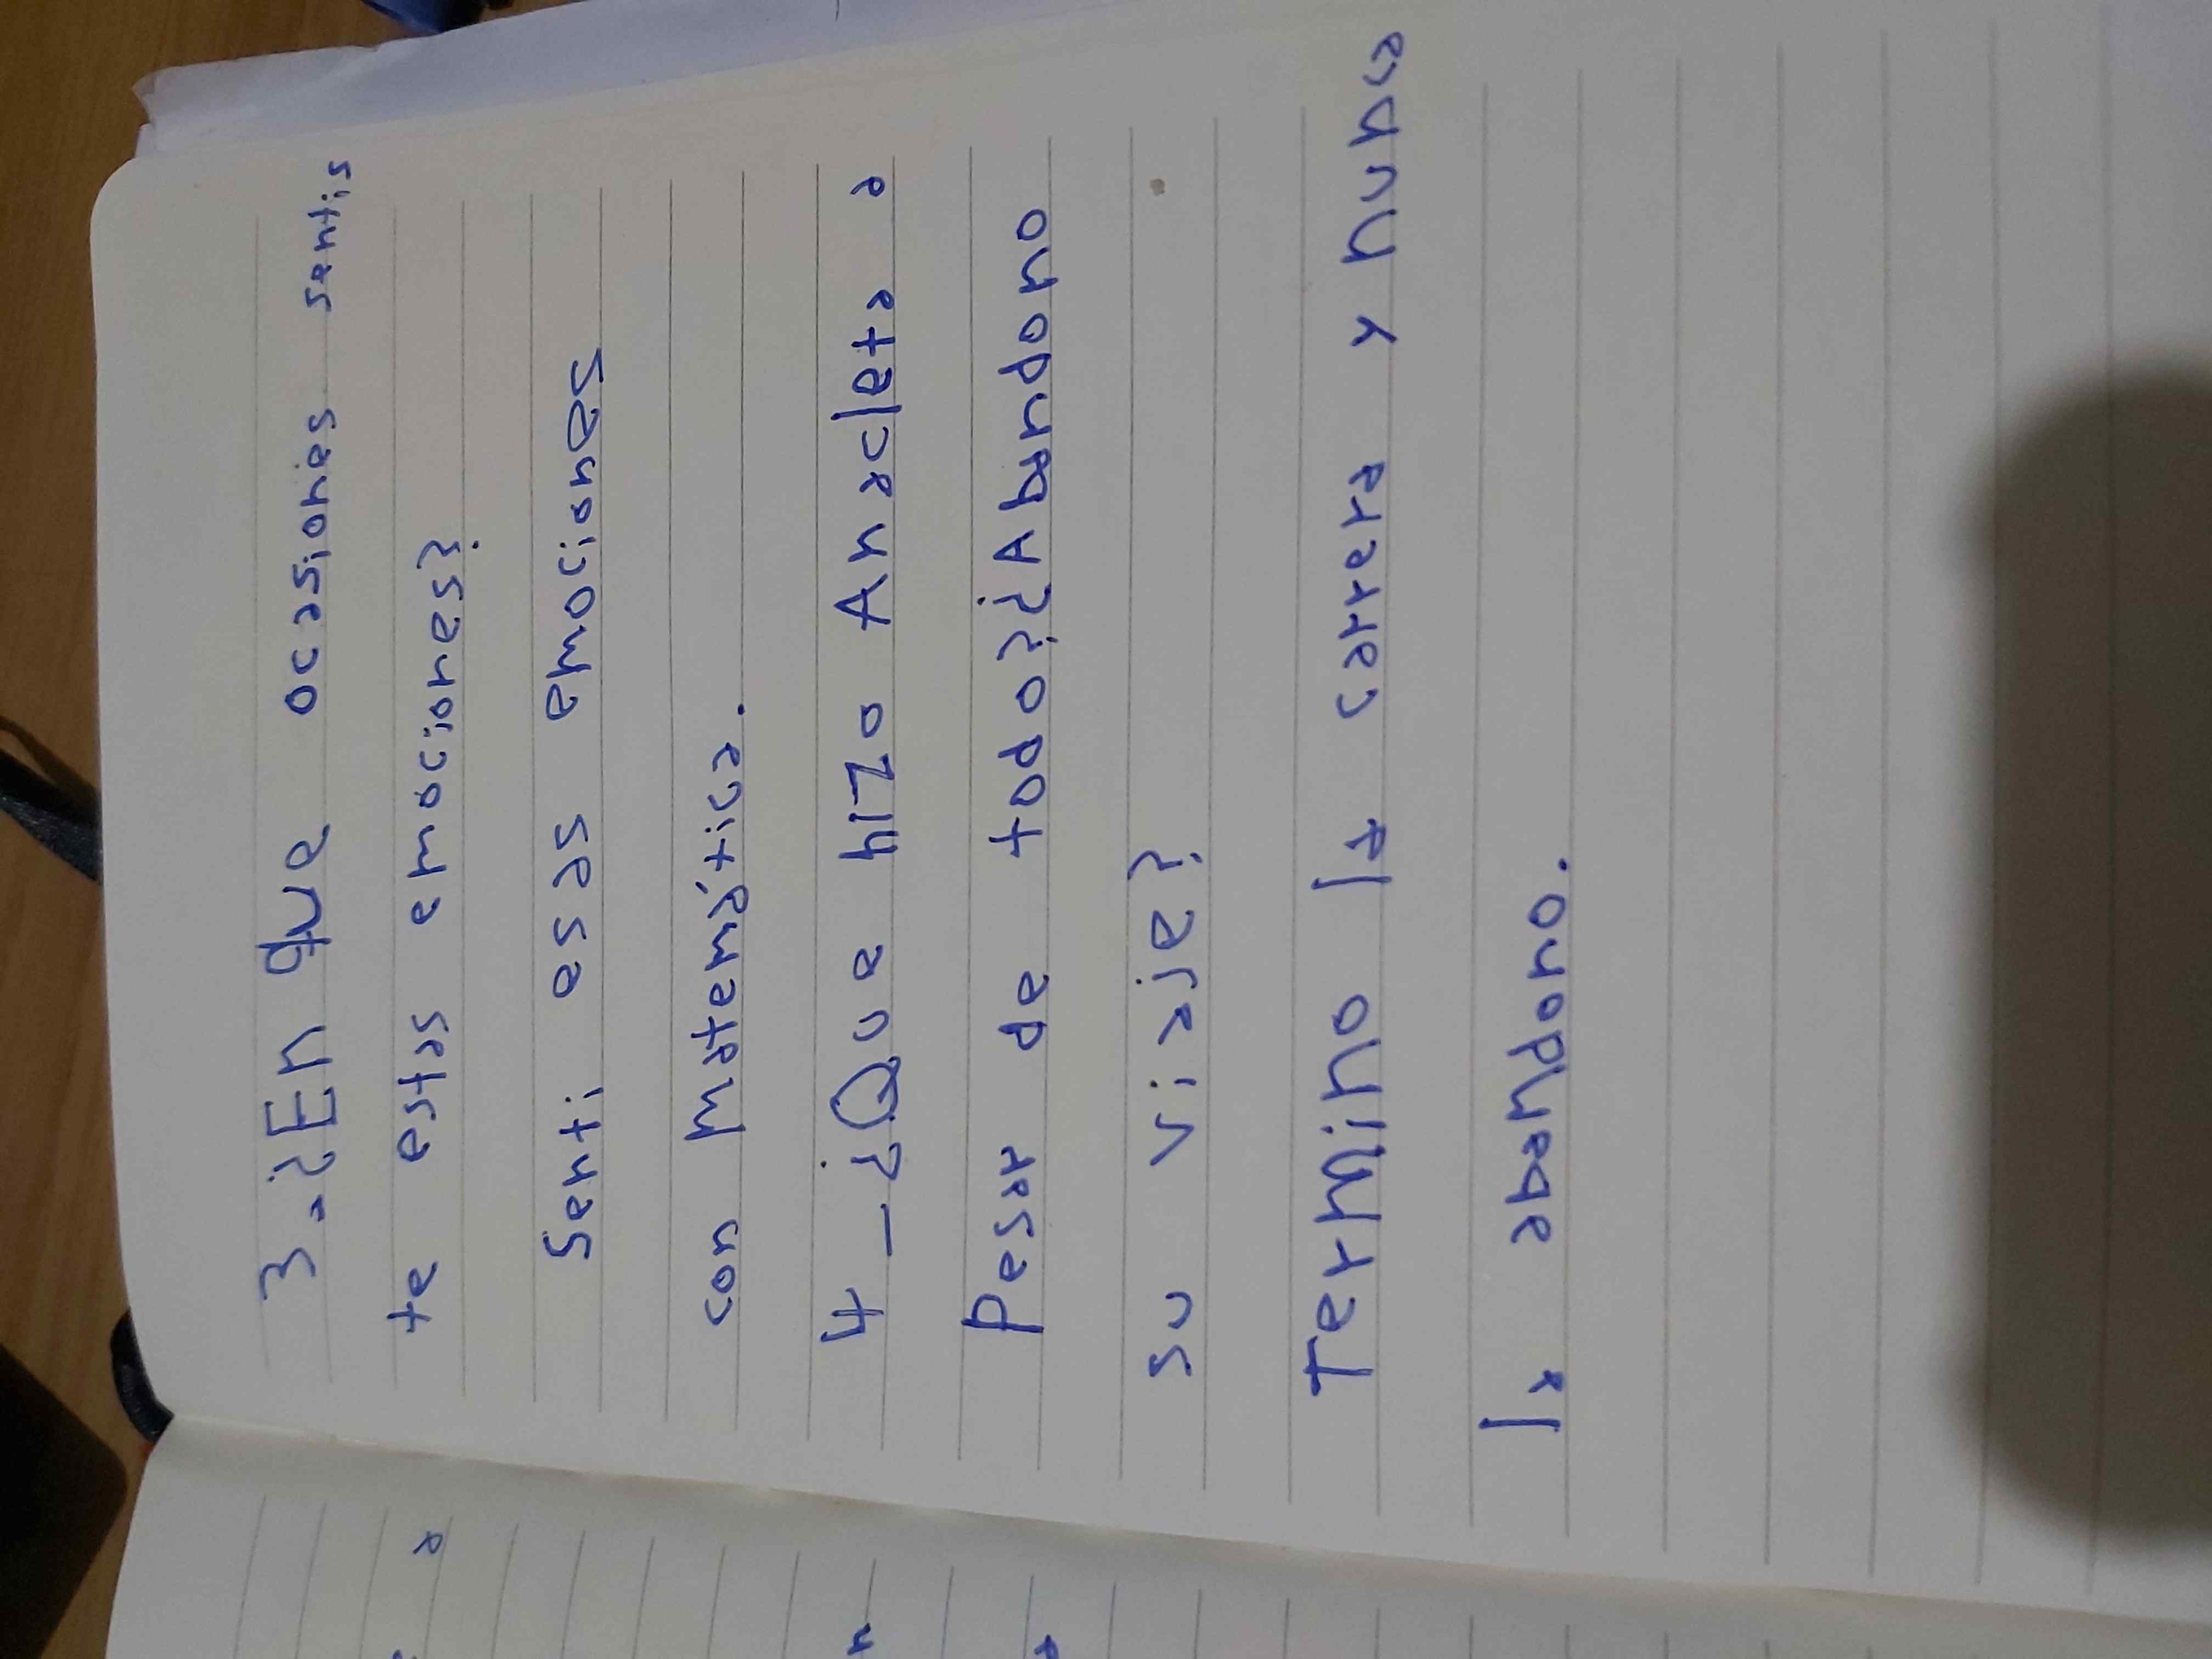 3-¿EN que ocasiones sentis
te estas emociones?
Senti esas emociones
con Matemática.
4_¿Que hizo Anacleta a
Pesar de todo?¿Abandono
su viaje?
Termino la carrera y Nunca
la abandono.